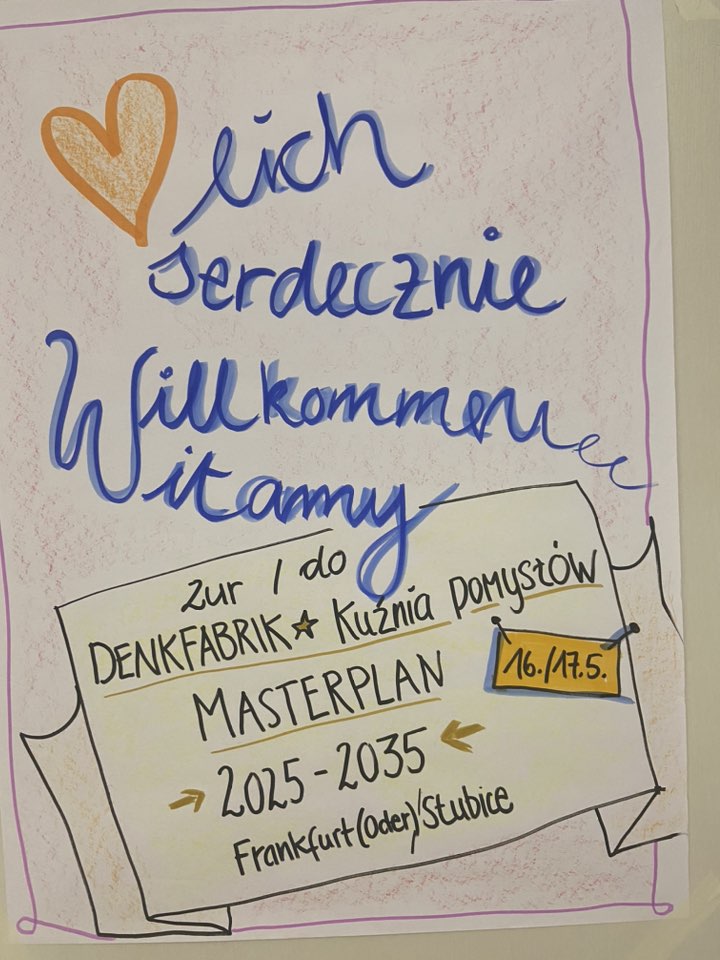 lich
serdecznie
Willkommen
Witamy
zur / do
DENKFABRIK Kuźnia pomysłów
MASTERPLAN
16./17.5.
2025-2035
Frankfurt(Oder)/Słubice